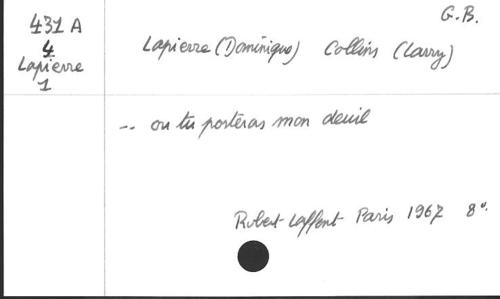 G.B.
431 A
4
Lapierre
1
Lapierre (Dominique) Collins (Larry)
-- ou tu porteras mon deuil
Robert Laffont Paris 1967 8°.